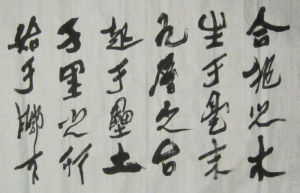 合抱之木
生于毫末
九层之台
起于垒土
千里之行
始于脚下